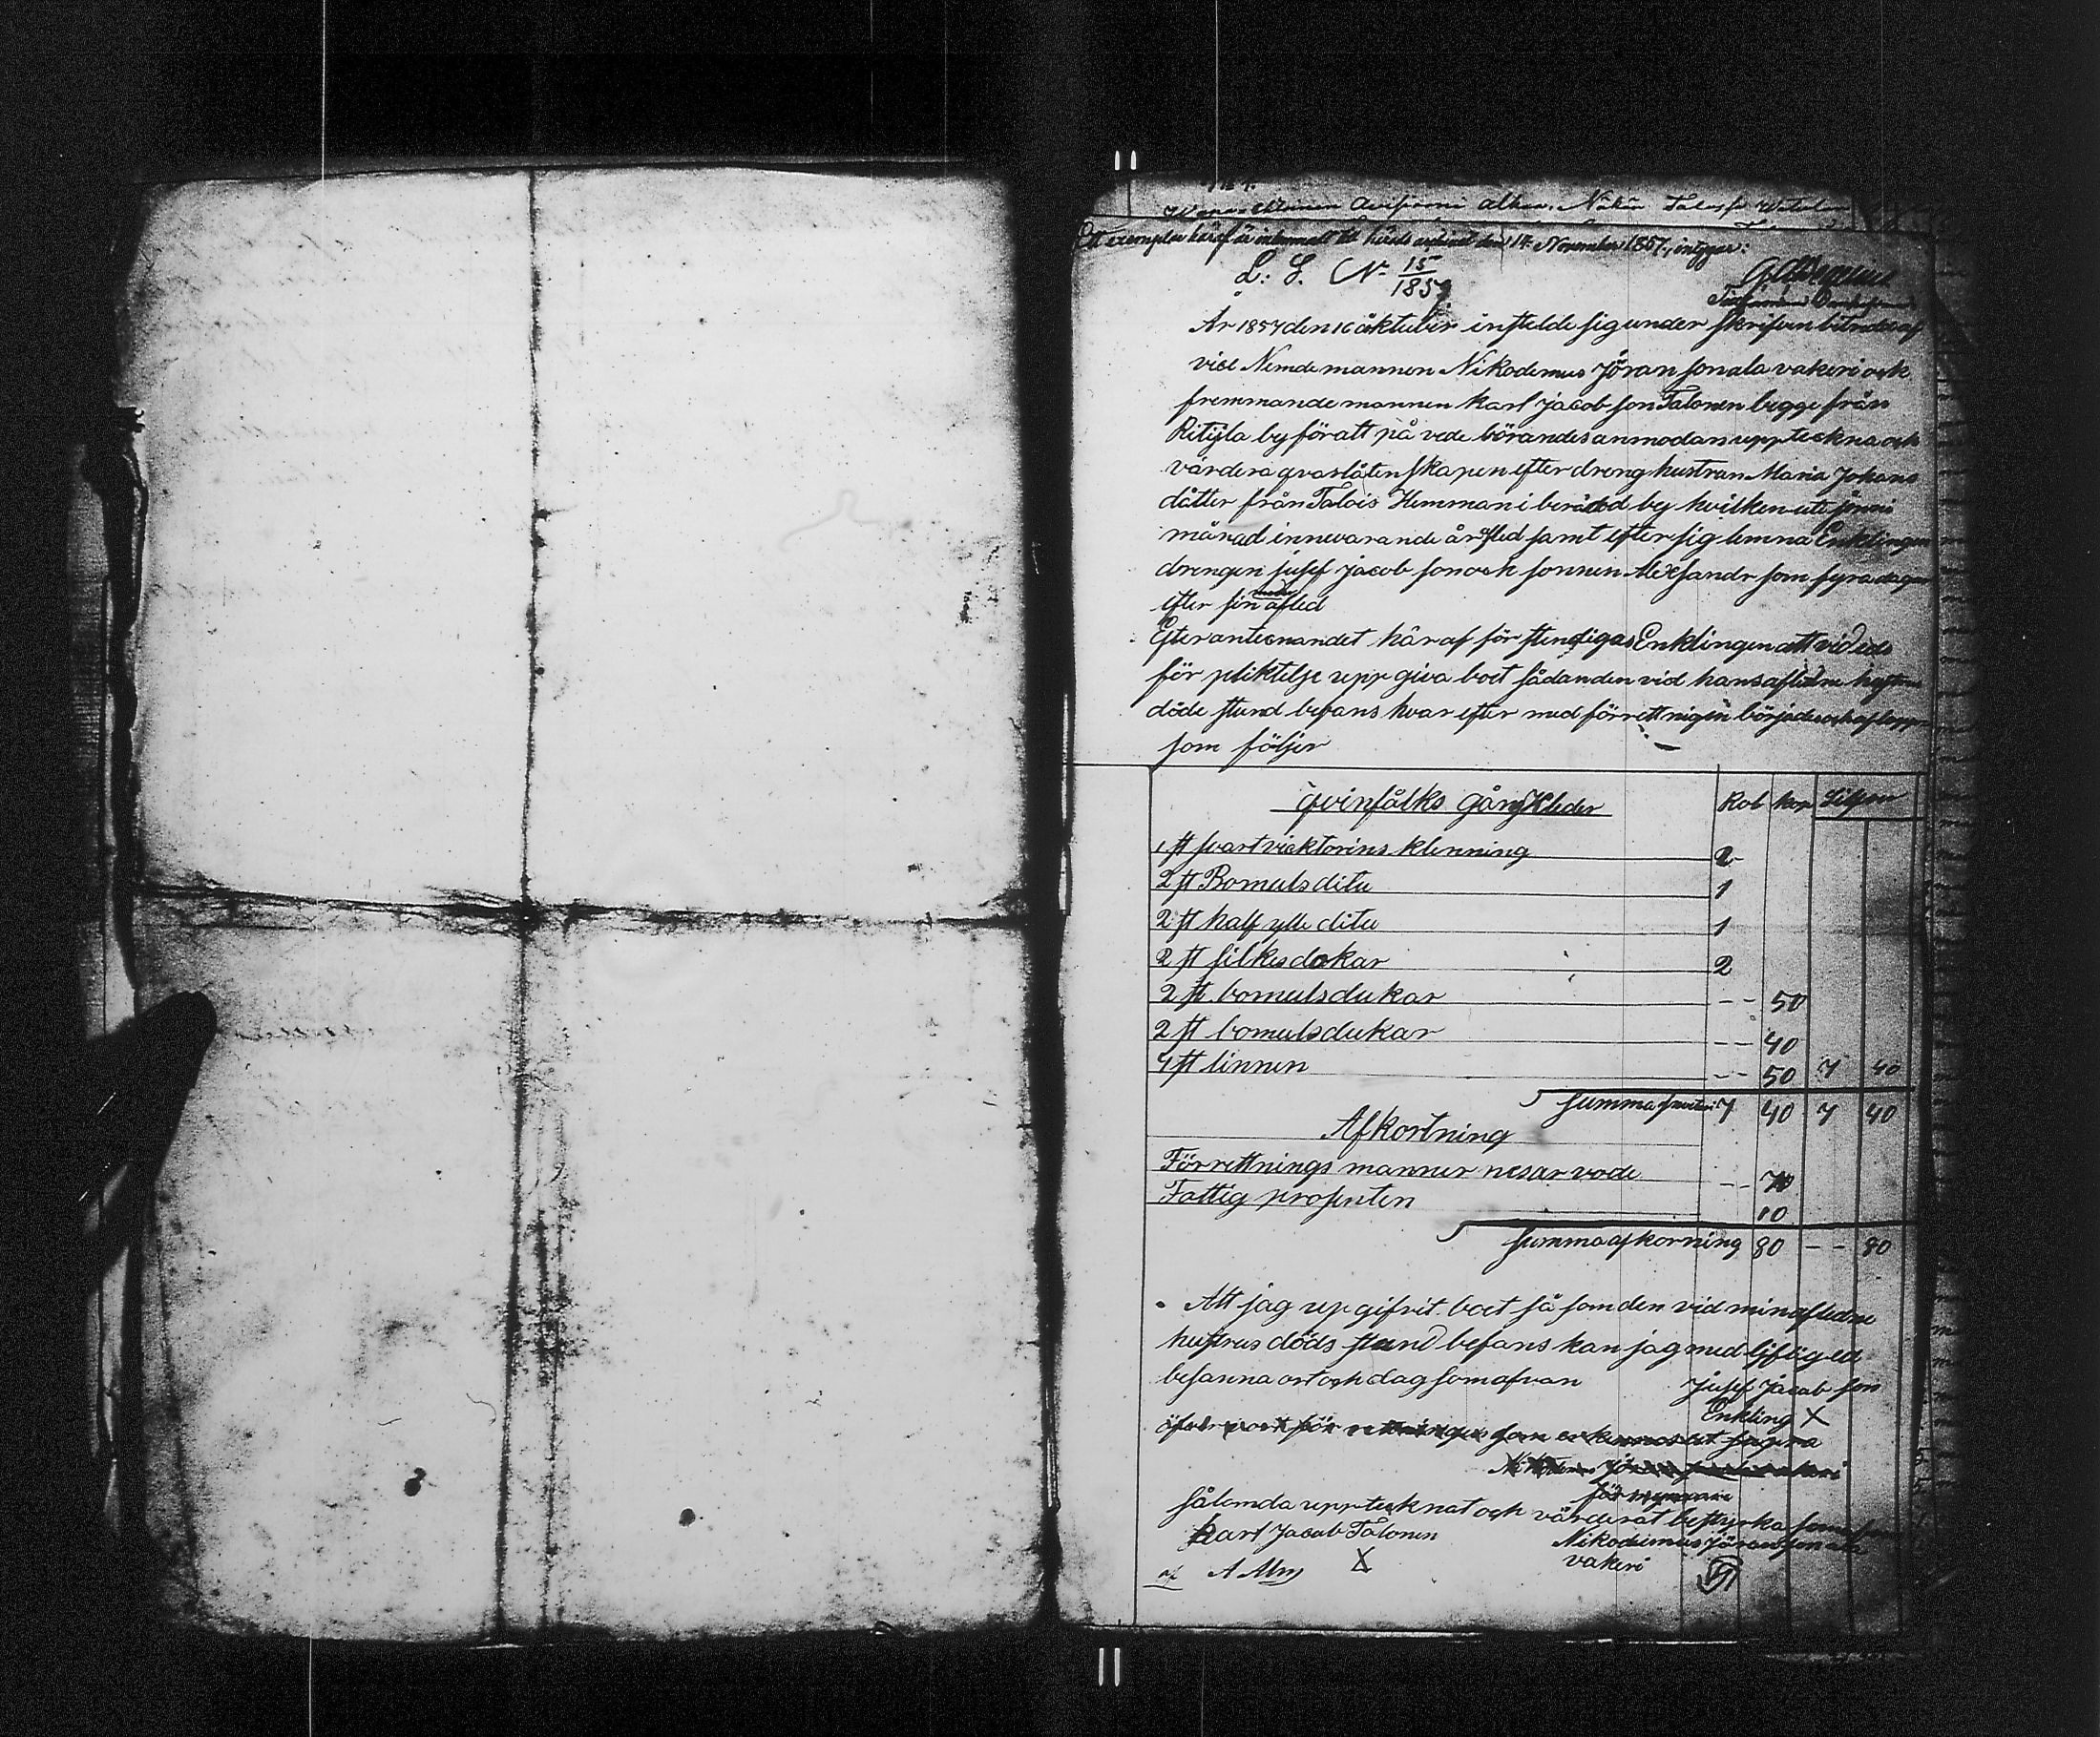 Ett exemplar häraf är inkommet till härads arkivet den 14 November 1857, intygar:
L: S. No 15/1857.
År 1857 den 16 åktuber instelde sig under skrifven bitrede af
vice Nemdemannen Nikodemus Jöranson ala vakeri ock
fremmande mannen Karl Jacob son Talonen begge från
Ritÿla by för att på vede börandes anmodan uppteckna och
värdera qvarlåtenskapen efter dreng hustrun Maria Johans
dåtter från Talois Hemman i berörd by hvilken uti junii
månad innevarande år afled samt efter sig lemna Enklingen
drengen jusef Jacob son ock sonnen Alexsandr som fyra dagar
efter sin moder afled
Efter antecnandet häraf för stendigas Enklingen att vid eds
för pliktelse upp giva boet sådan den vid hans aflidne hustrus
döds stund befans hvar efter med förrettnigen börjades ock aflopp
som följer
qvinfålks gång Kleder
Rob kop Silfver
1 st svart vicktorins klenning 2
2 st Bomuls ditu 1
2 st half ylle ditu 1
2 st silkes dokar 2
2 st bomuls dukar -- 50
2 st bomuls dukar -- 40
4 st linnen -- 50 7 40
Summa 7 40 7 40
Afkortning
Förrettnings manner nes arvode -- 70
Fattig prosenten 10
Summa afkorning 80 -- 80
Att jag up gifvit boet så som den vid min afledne
hustrus döds stund befans kan jag med ljflig ed
besanna ort och dag som afvan
Jusef Jacob son
Enkling X
Sålomda upptecknat och värderat bestyrka
Karl Jacob Talonen
Nikodemus Jöransson ala
vakeri
X
af A Alm